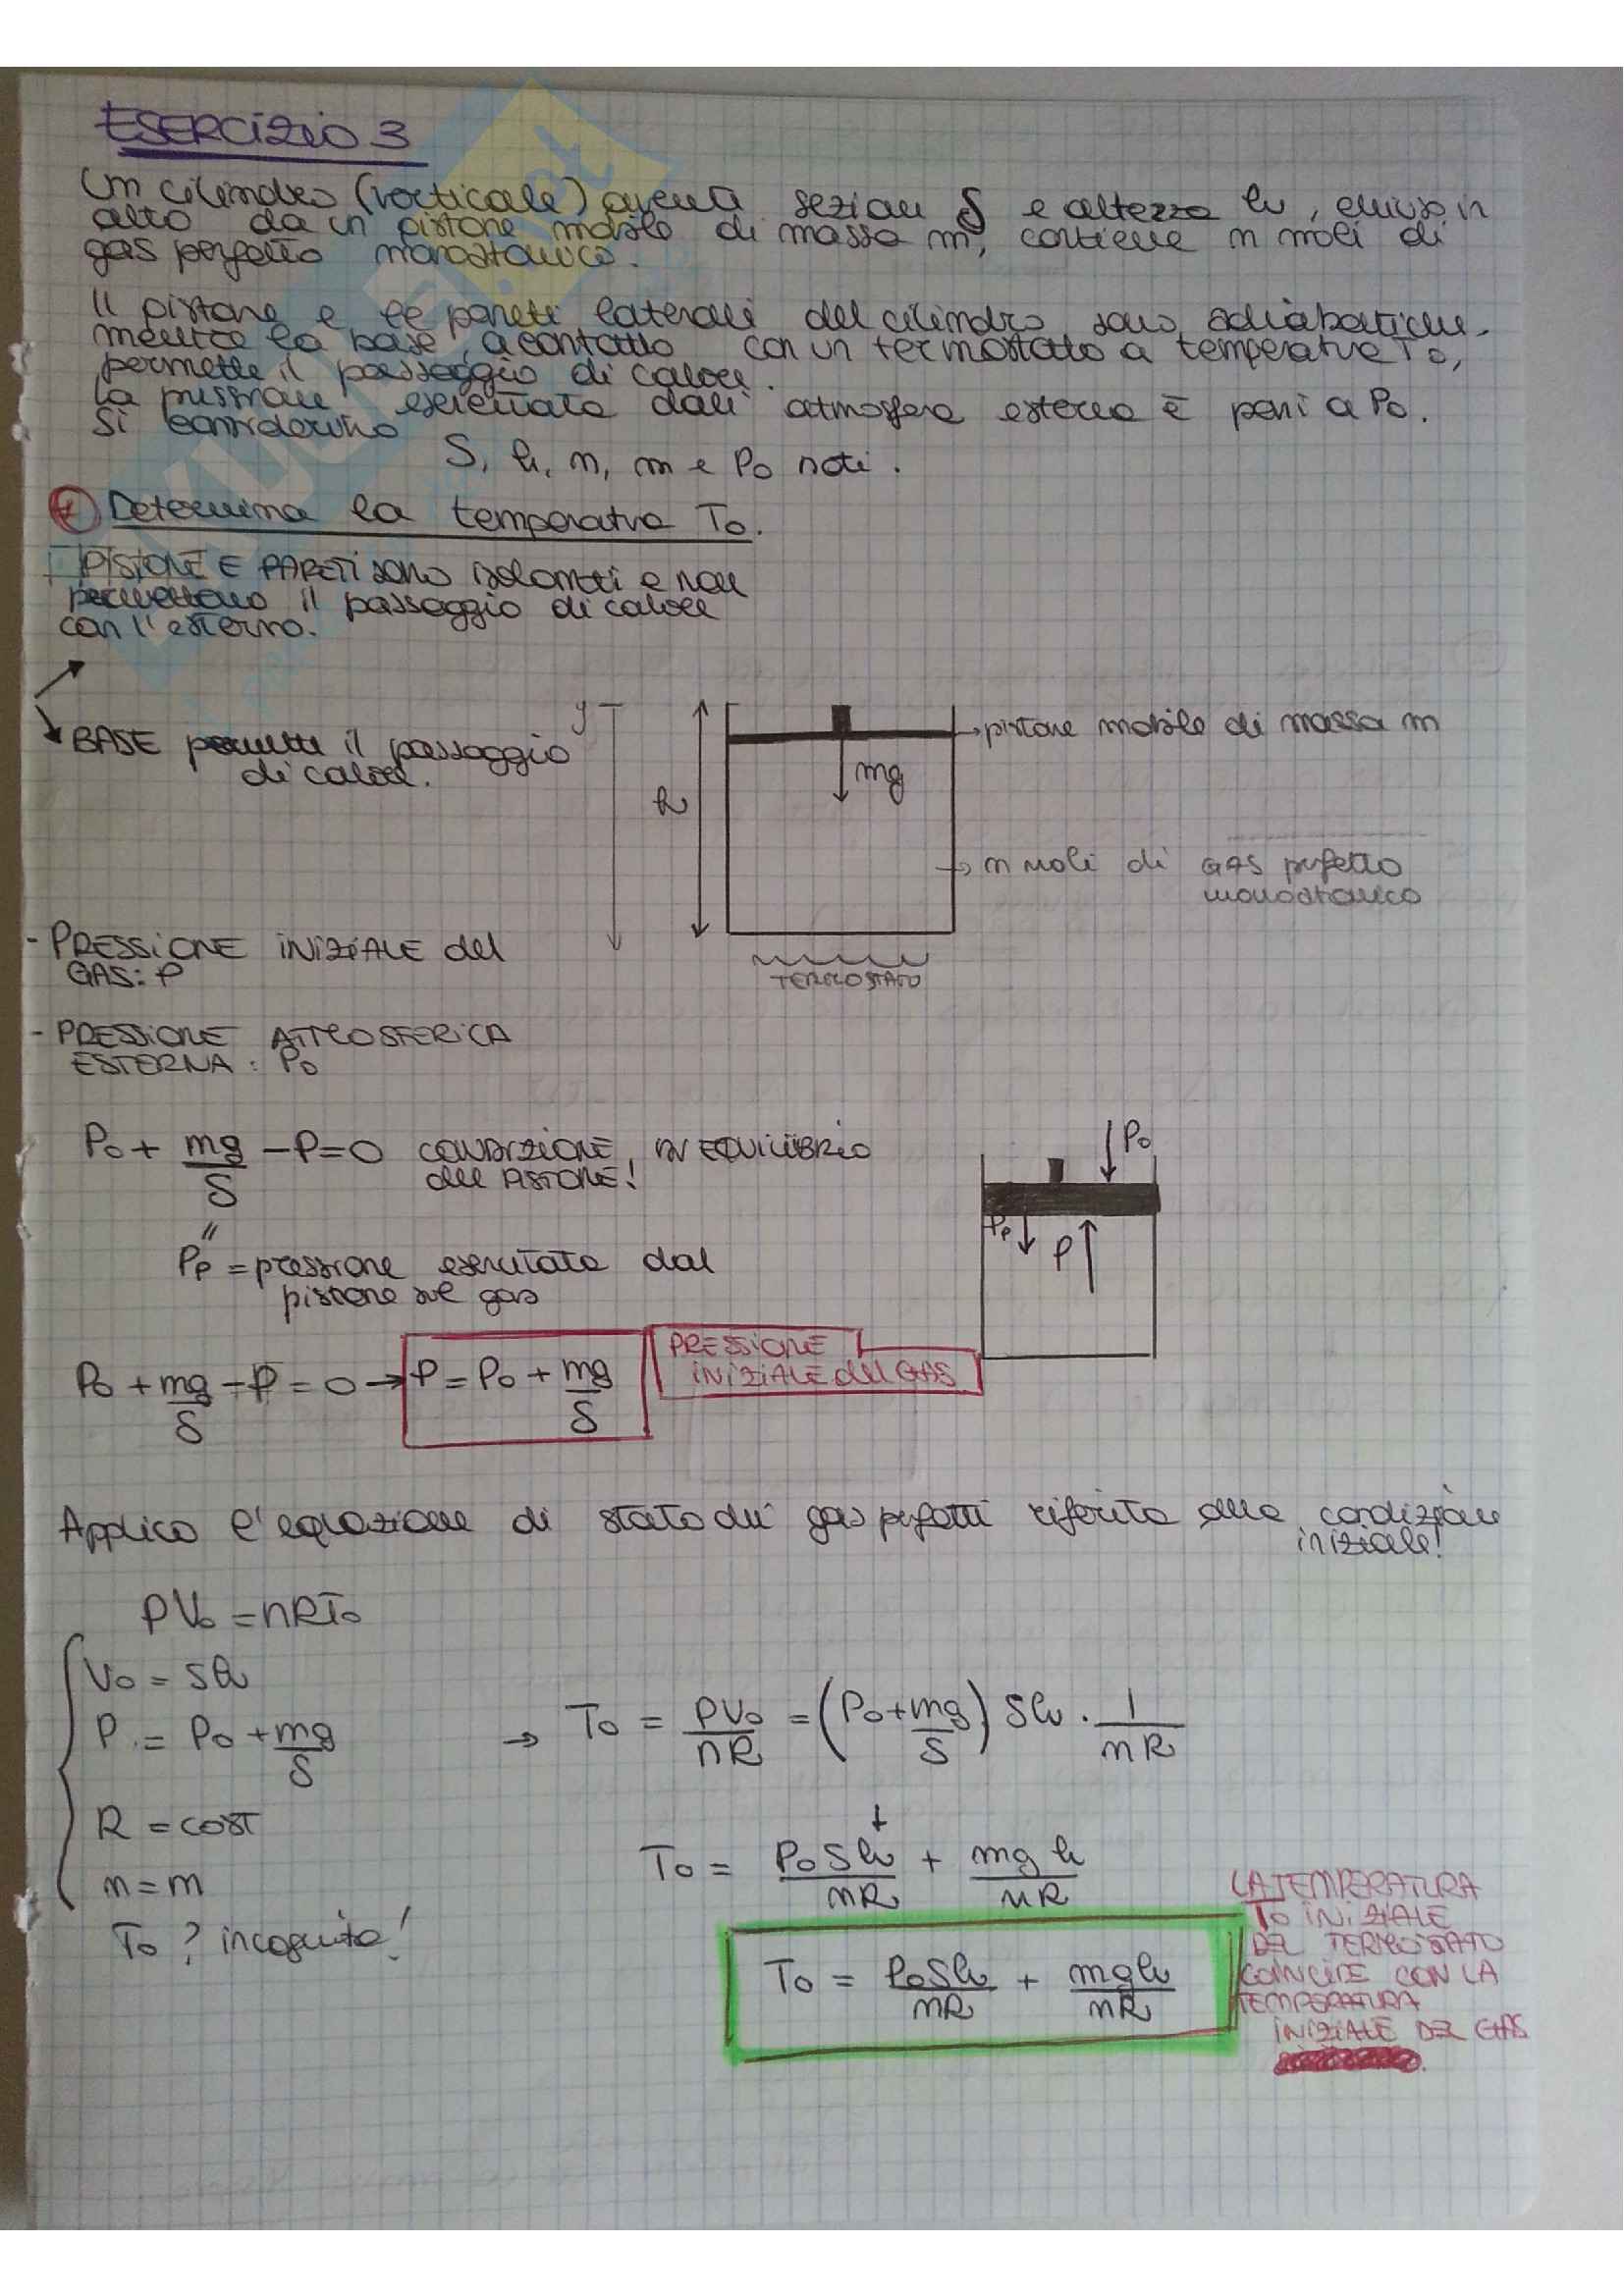 ESERCIZIO 3
Un cilindro (verticale) aventi sezioni S e altezza h, chiuso in
alto da un pistone mobile di massa m, contiene n moli di
gas perfetto monoatomico.
Il pistone e le pareti laterali del cilindro sono adiabatiche
mentre la base, a contatto con un termostato a temperatura T0,
permette il passaggio di calore.
La pressione esercitata dall' atmosfera esterna è pari a P0.
Si considerino
S, h, n, m e P0 noti.
Determina la temperatura T0.
PISTONE E PARETI sono isolanti e non
permettono il passaggio di calore
con l'esterno.
BASE permette il passaggio
di calore.
y
h
mg
→ pistone mobile di massa m
→ n moli di GAS perfetto
monoatomico
TERMOSTATO
- PRESSIONE INIZIALE del
GAS: P
- PRESSIONE ATMOSFERICA
ESTERNA: P0
P0 + mg/S - P = 0 CONDIZIONE IN EQUILIBRIO
del PISTONE!
"
Pp = pressione esercitata dal
pistone sul gas
P0
Pp
P
P0 + mg/S - P = 0 → P = P0 + mg/S
PRESSIONE
INIZIALE del GAS
Applico l'equazione di stato dei gas perfetti riferita alla condizione
iniziale!
PV0 = nRT0
V0 = Sh
P = P0 + mg/S
R = cost
n = n
T0? incognita!
→ T0 = PV0/nR = (P0 + mg/S) Sh · 1/nR
↓
T0 = P0Sh/nR + mgh/nR
T0 = P0Sh/nR + mgh/nR
LA TEMPERATURA
T0 INIZIALE
DEL TERMOSTATO
COINCIDE CON LA
TEMPERATURA
INIZIALE DEL GAS